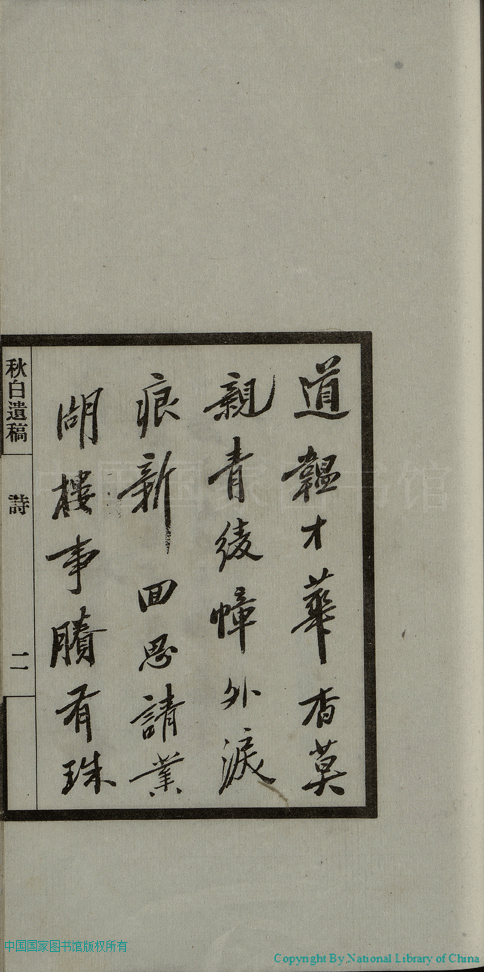 道韞才華杳莫
親青綾幛外淚
痕新回思請業
湖樓事賸有珠
秋白遺稿
詩
二
国国家图书馆
中国国家图书馆版权所有
Copyright By National Library of China